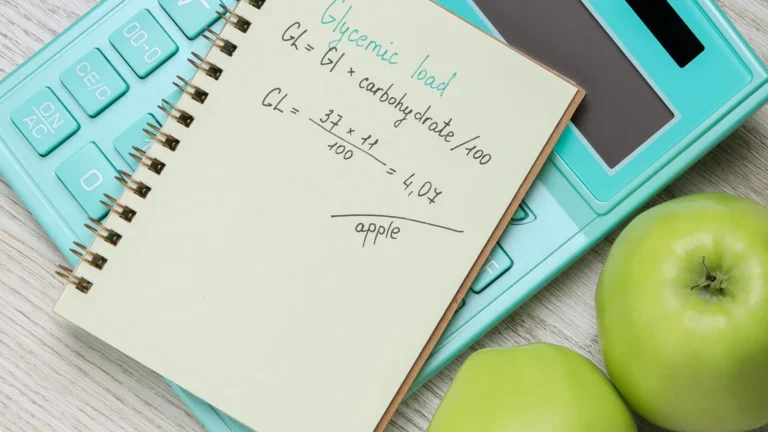 Glycemic load
GL = GI × carbohydrate/100
GL = 37 × 11
100
= 4,07
apple
00-0
CE/C
ON
AC
0